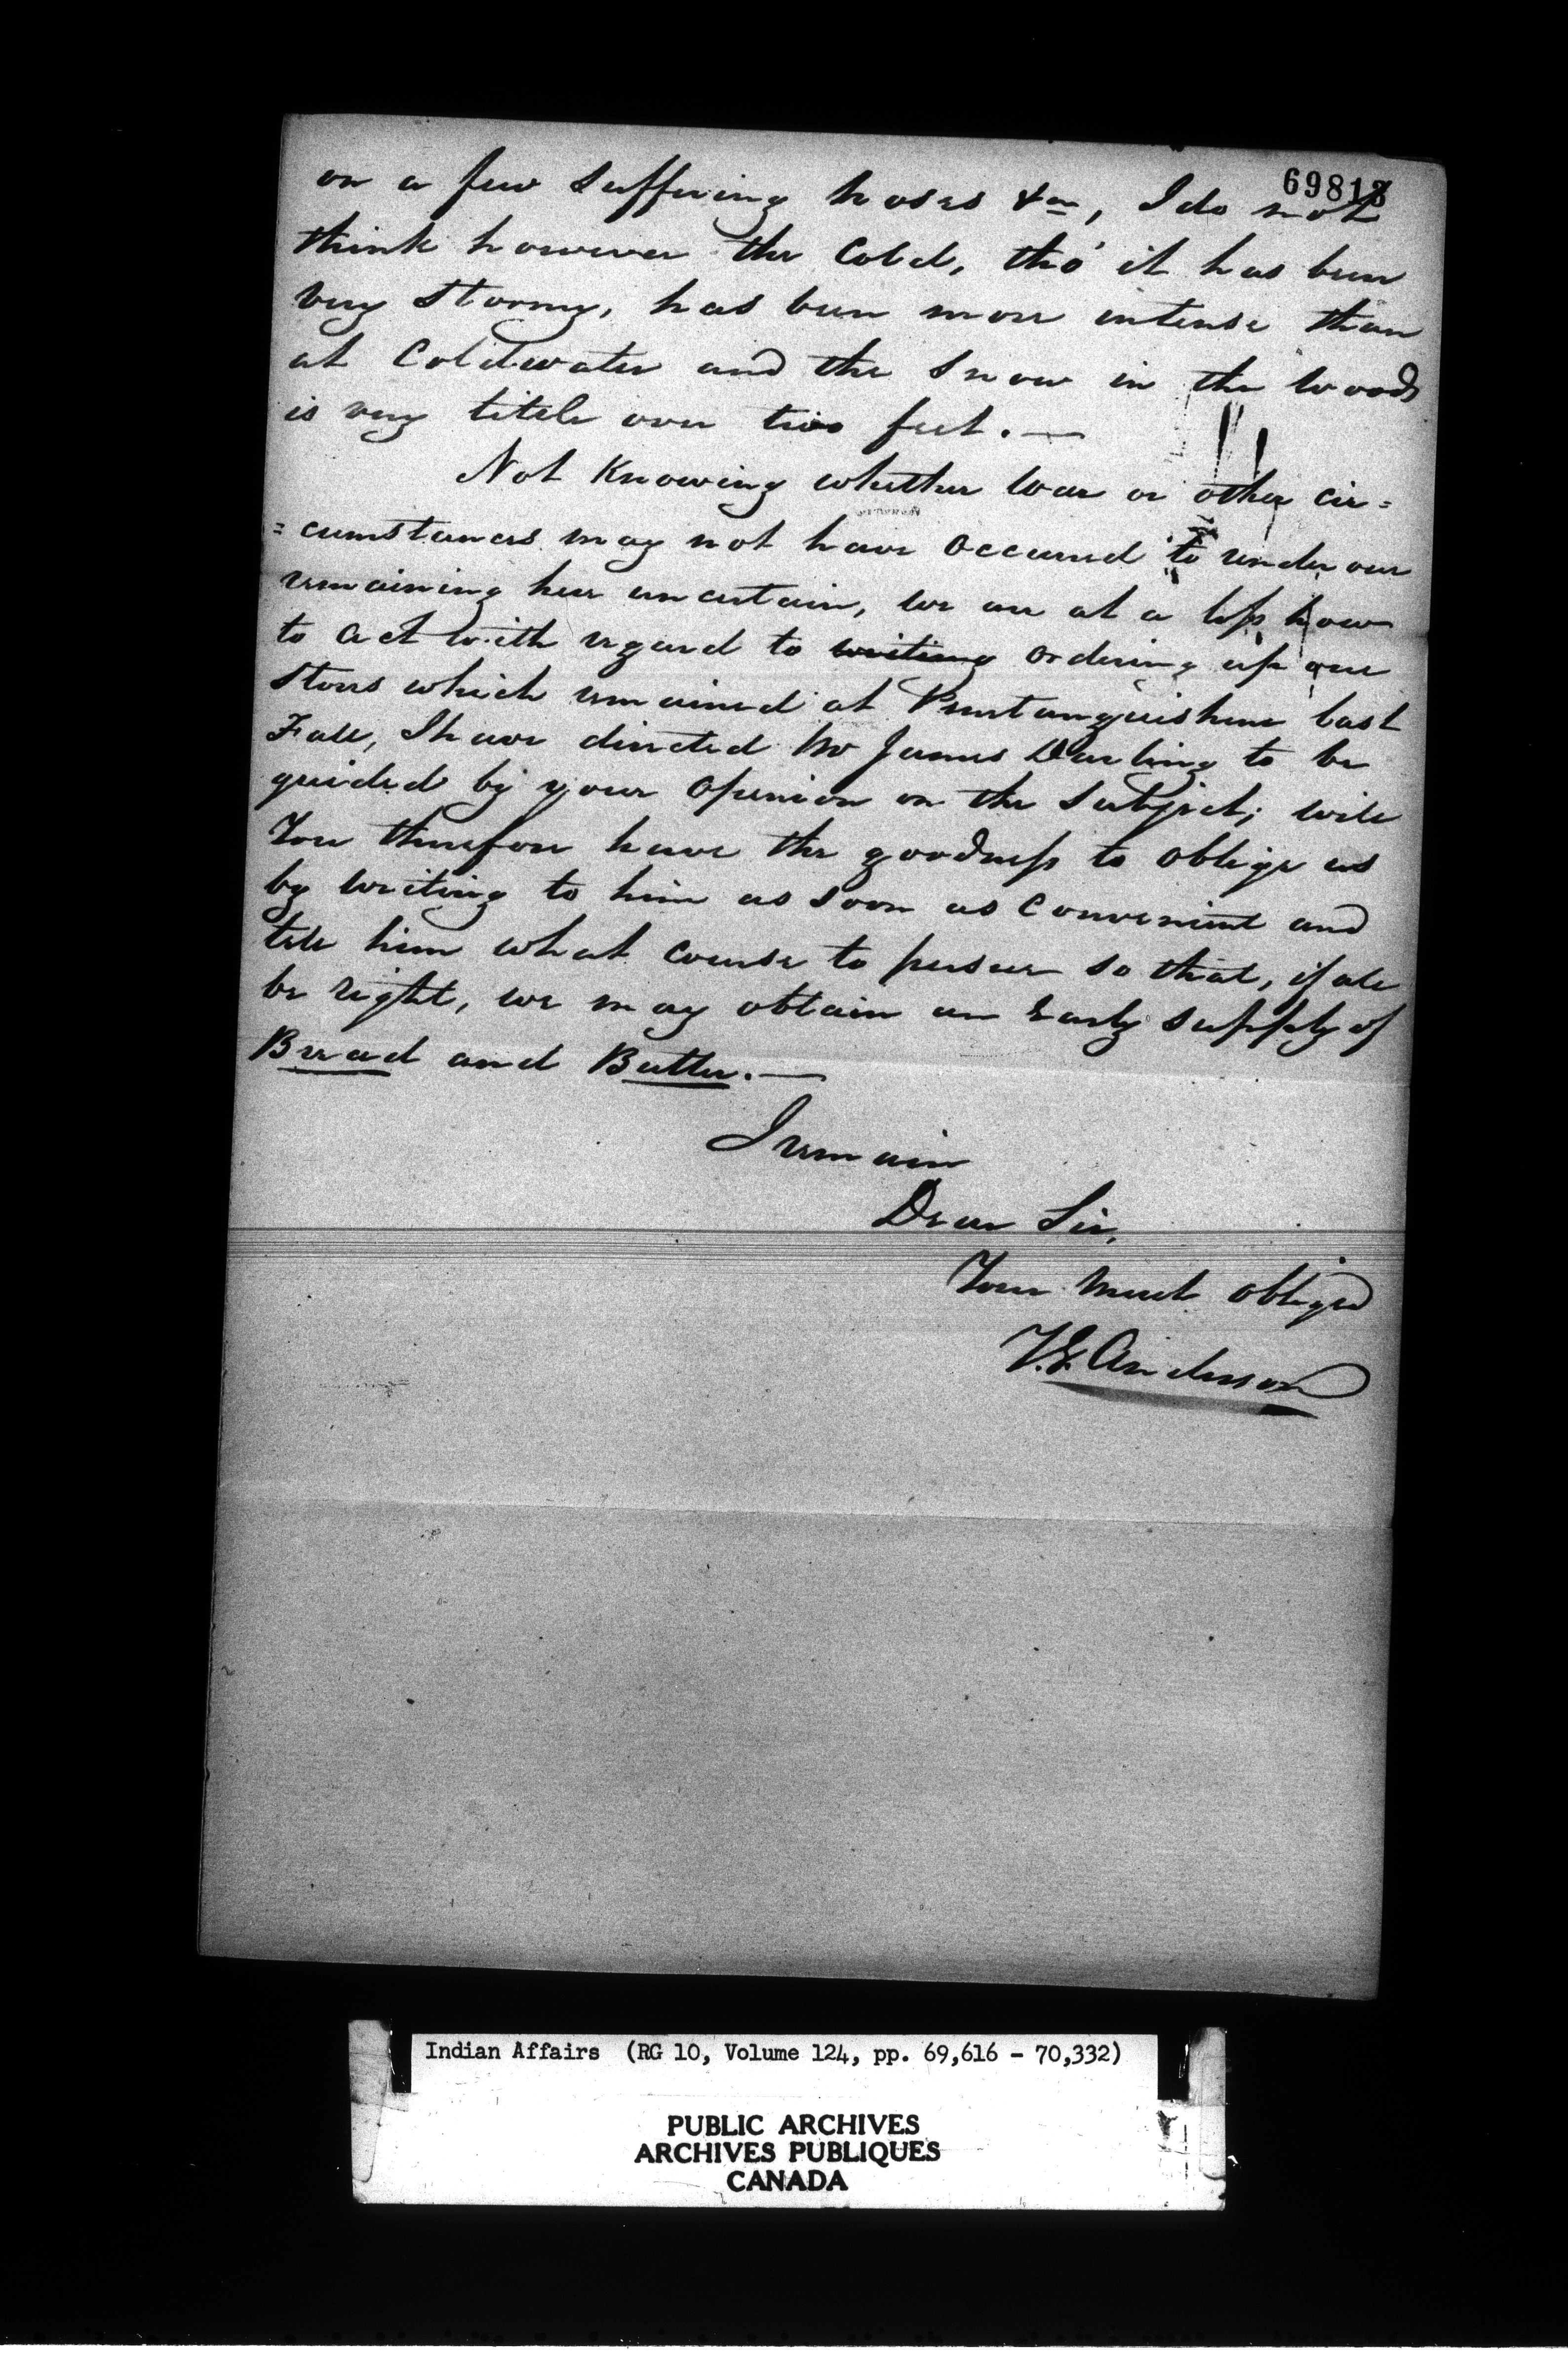 69813
on a few suffering noses &ca, I do not
think however the Cold, tho' it has been
very stormy, has been more intense than
at Coldwater and the snow in the woods
is very little over two feet. —
Not Knowing whether War or other cir=
=cumstances may not have occurred to render our
remaining here uncertain, we are at a loss how
to act with regard to writing ordering up our
stores which remained at Penetanguishene last
Fall, I have directed Mr James Darling to be
guided by your opinion on the subject; will
You therefore have the goodness to oblige us
by writing to him as soon as convenient and
tell him what course to pursue so that, if all
be right, we may obtain an Early supply of
Bread and Butter. —
I remain
Dear Sir,
Your much obliged
T.G. Anderson
Indian Affairs (RG 10, Volume 124, pp. 69,616 - 70,332)
PUBLIC ARCHIVES
ARCHIVES PUBLIQUES
CANADA